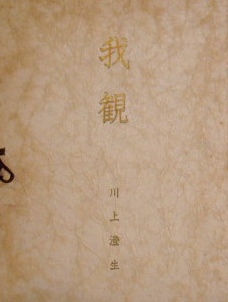 我観
川上澄生